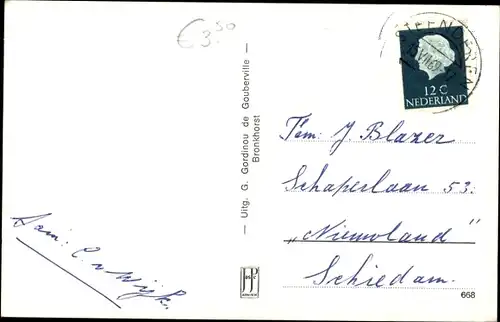 €3.50
STEENDEREN
12 C
NEDERLAND
— Uitg. G. Gordinou de Gouberville —
Bronkhorst
Fam: J Blazer
Schaperlaan 53:
„Nieuwland"
Schiedam.
Fam: C. v Wijk.
668